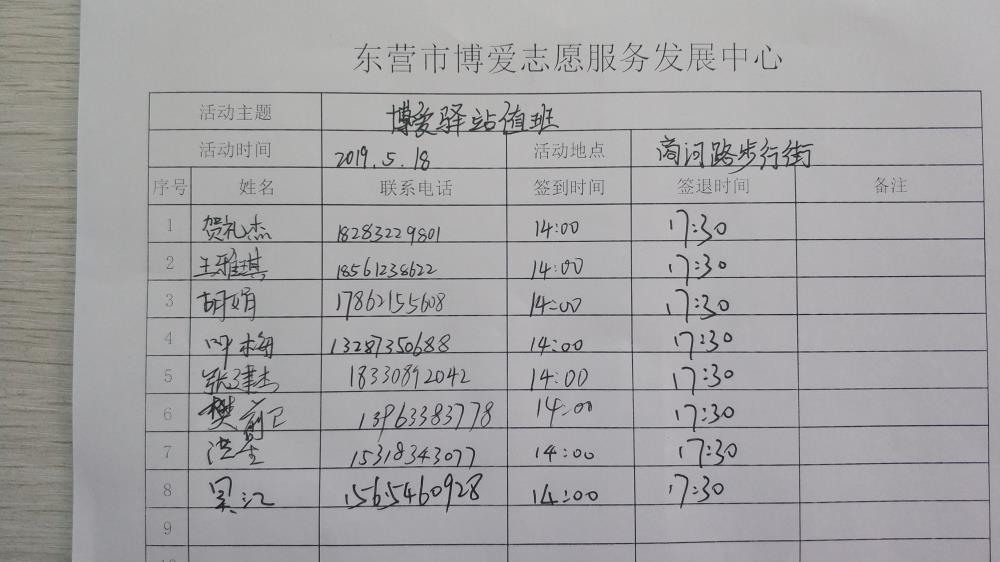 东营市博爱志愿服务发展中心
活动主题 博爱驿站值班
活动时间 2019.5.18 活动地点 商河路步行街
序号 姓名 联系电话 签到时间 签退时间 备注
1 贺礼杰 18283229801 14:00 17:30
2 王雅琪 18561238622 14:00 17:30
3 胡娟 17862155608 14:00 17:30
4 叶梅 13287350688 14:00 17:30
5 张建杰 18330892042 14:00 17:30
6 樊前卫 13963383778 14:00 17:30
7 洪 15318343077 14:00 17:30
8 吴江 1565460928 14:00 17:30
9